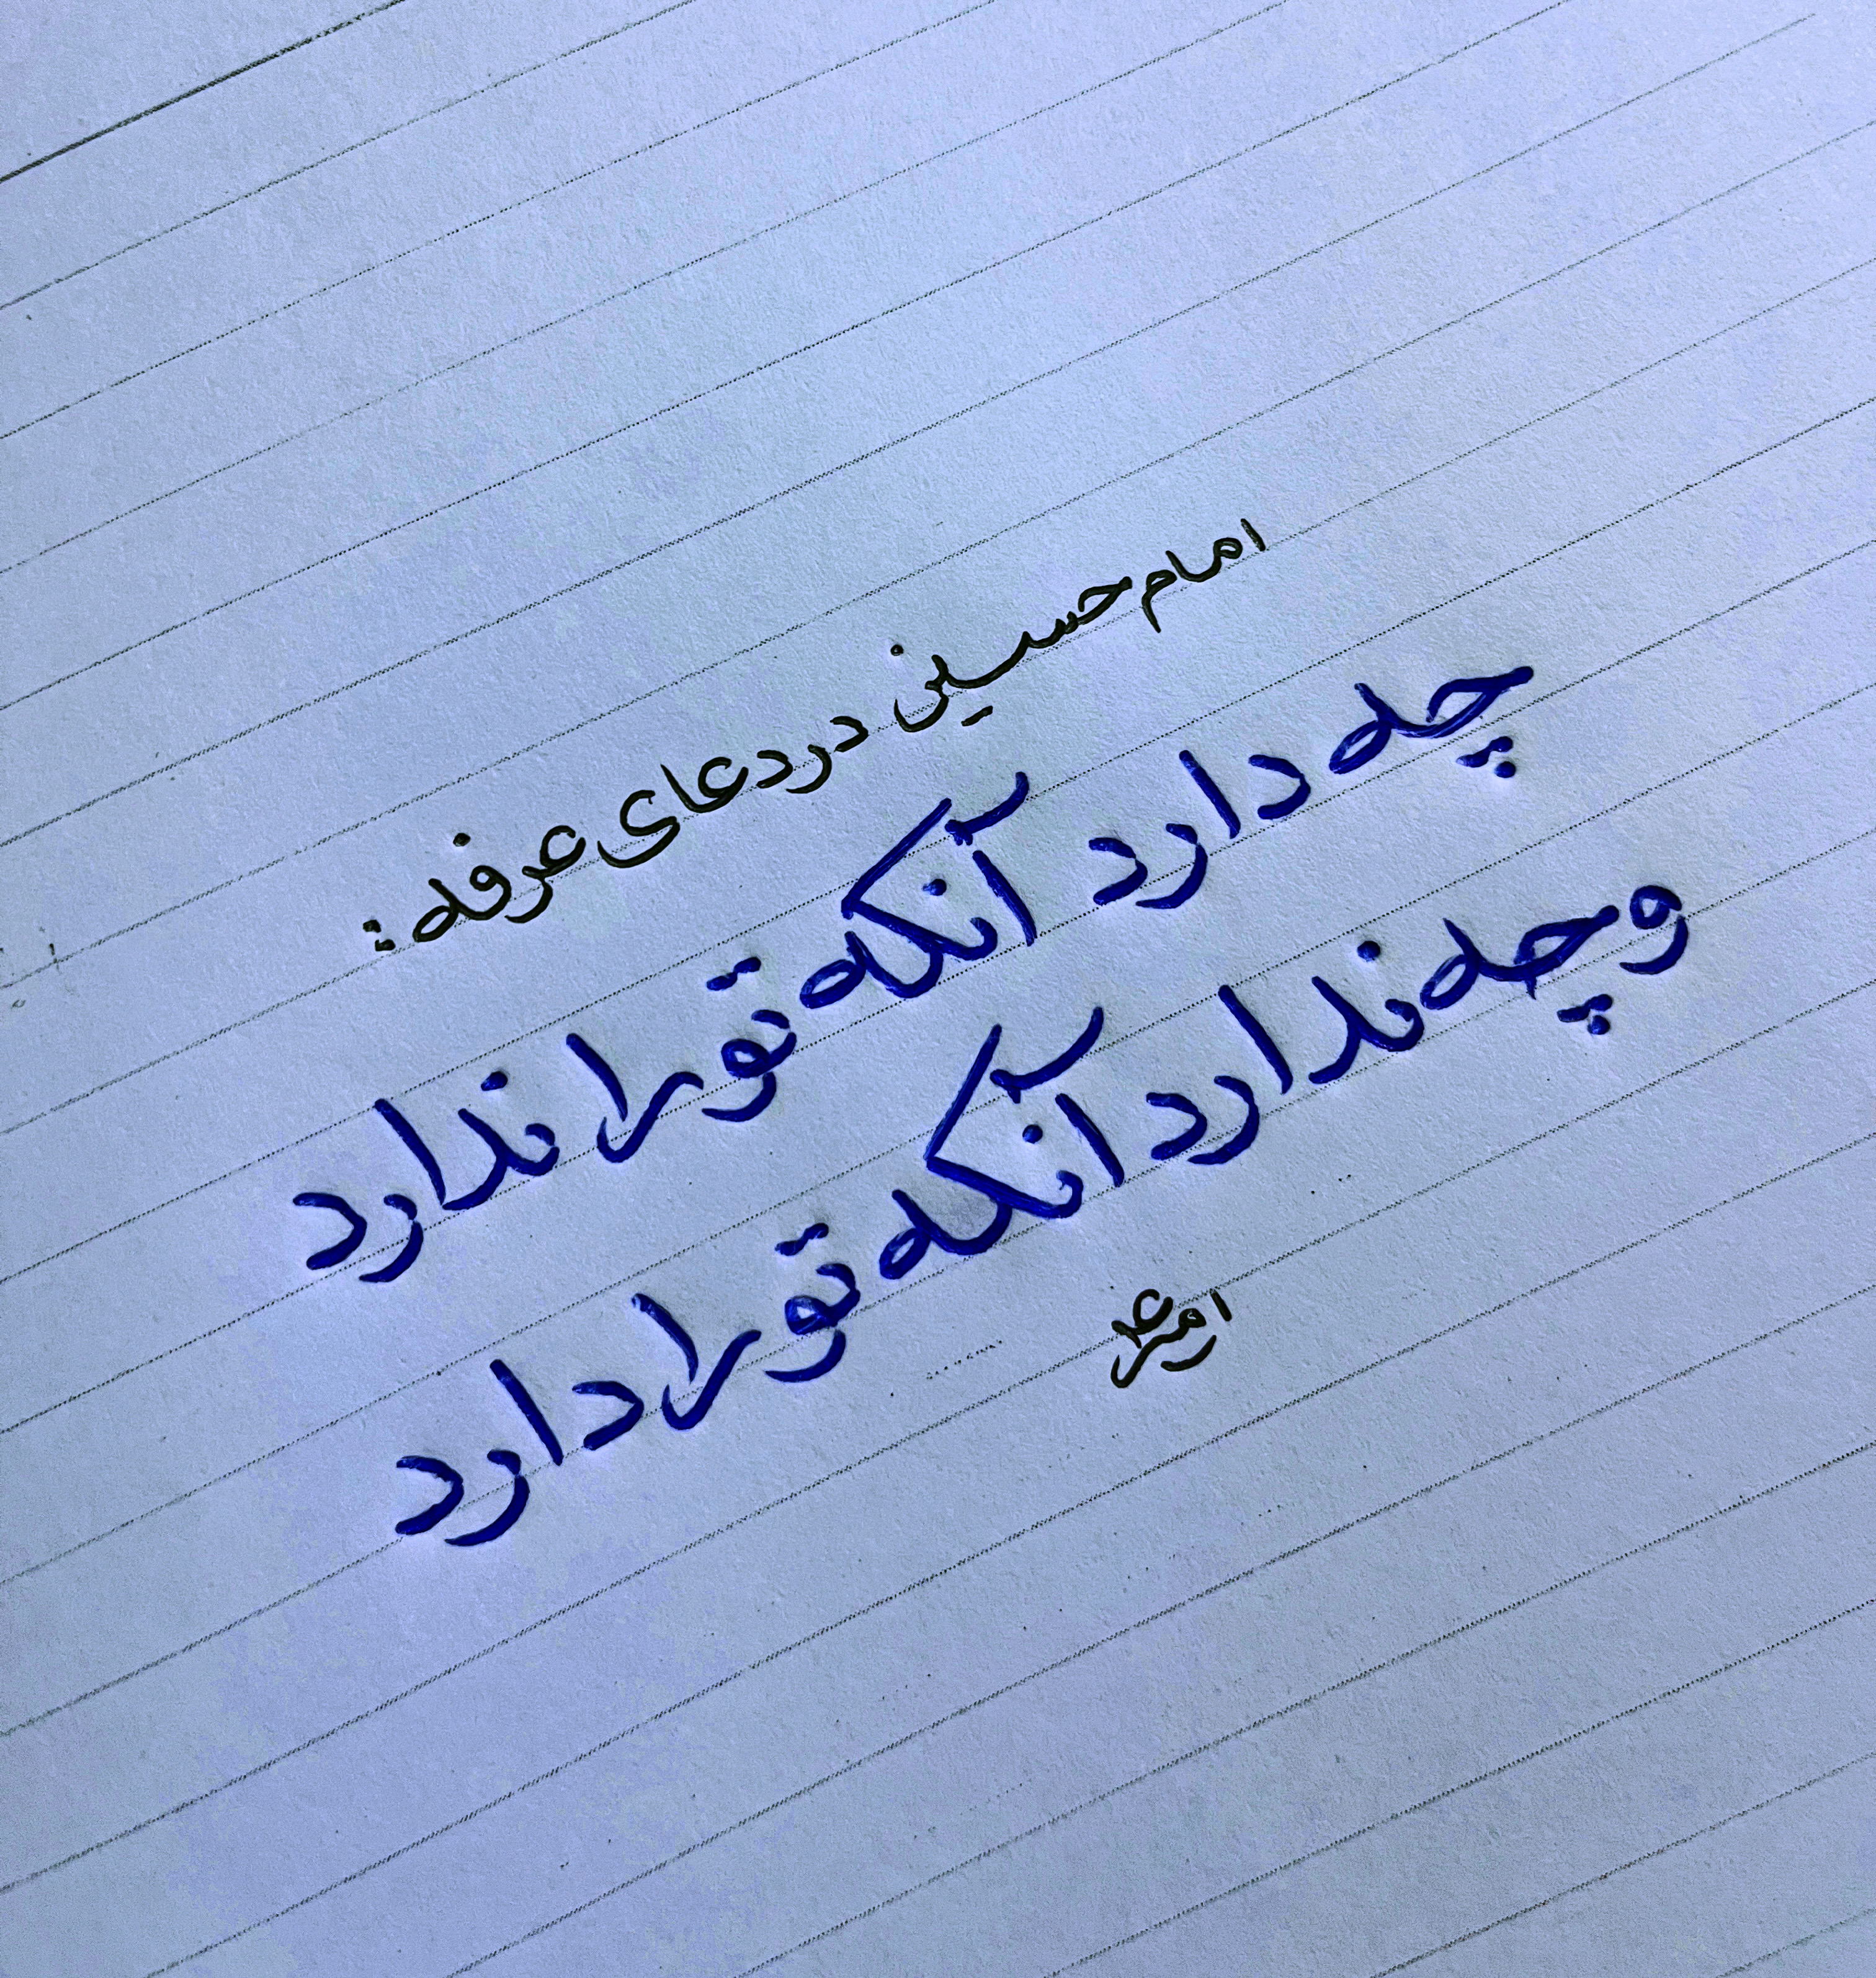 امام حسین در دعای عرفه:
چه دارد آنکه تو را ندارد
و چه ندارد آنکه تو را دارد